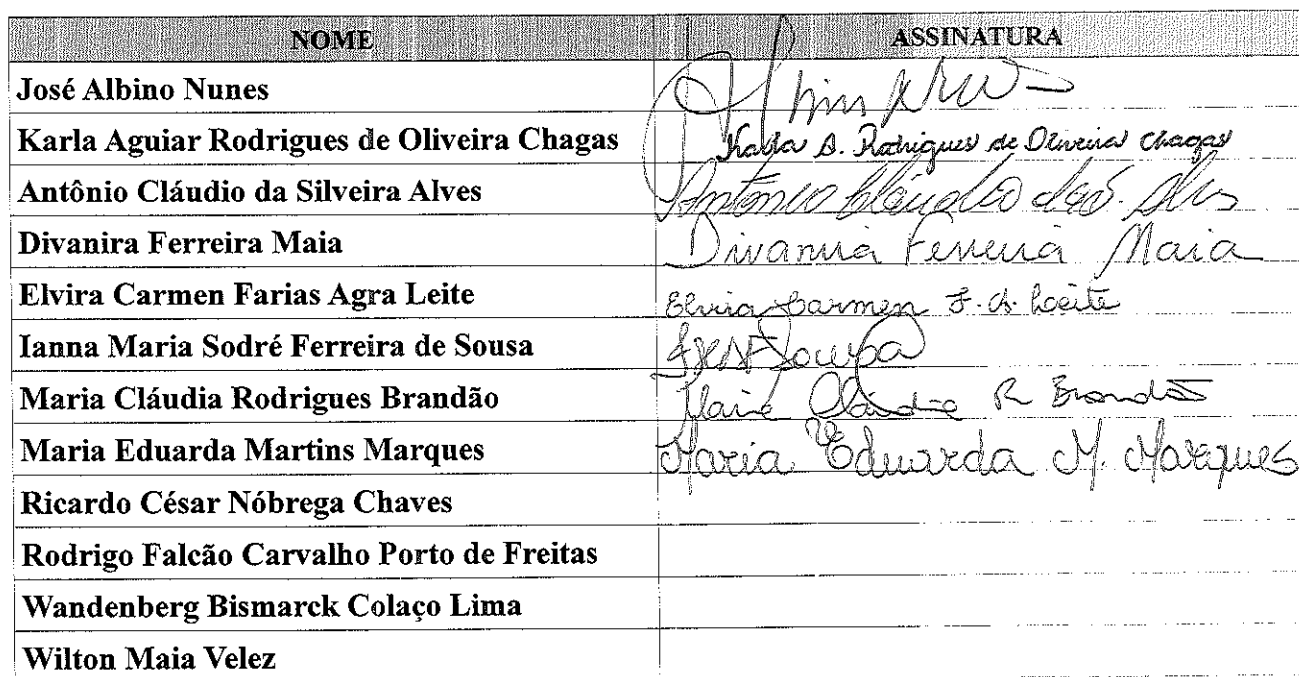 NOME ASSINATURA
José Albino Nunes
Karla Aguiar Rodrigues de Oliveira Chagas Karla A. Rodrigues de Oliveira Chagas
Antônio Cláudio da Silveira Alves Antônio Cláudio da S. Alves
Divanira Ferreira Maia Divanira Ferreira Maia
Elvira Carmen Farias Agra Leite Elvira Carmen F. A. Leite
Ianna Maria Sodré Ferreira de Sousa
Maria Cláudia Rodrigues Brandão Maria Cláudia R Brandão
Maria Eduarda Martins Marques Maria Eduarda M. Marques
Ricardo César Nóbrega Chaves
Rodrigo Falcão Carvalho Porto de Freitas
Wandenberg Bismarck Colaço Lima
Wilton Maia Velez